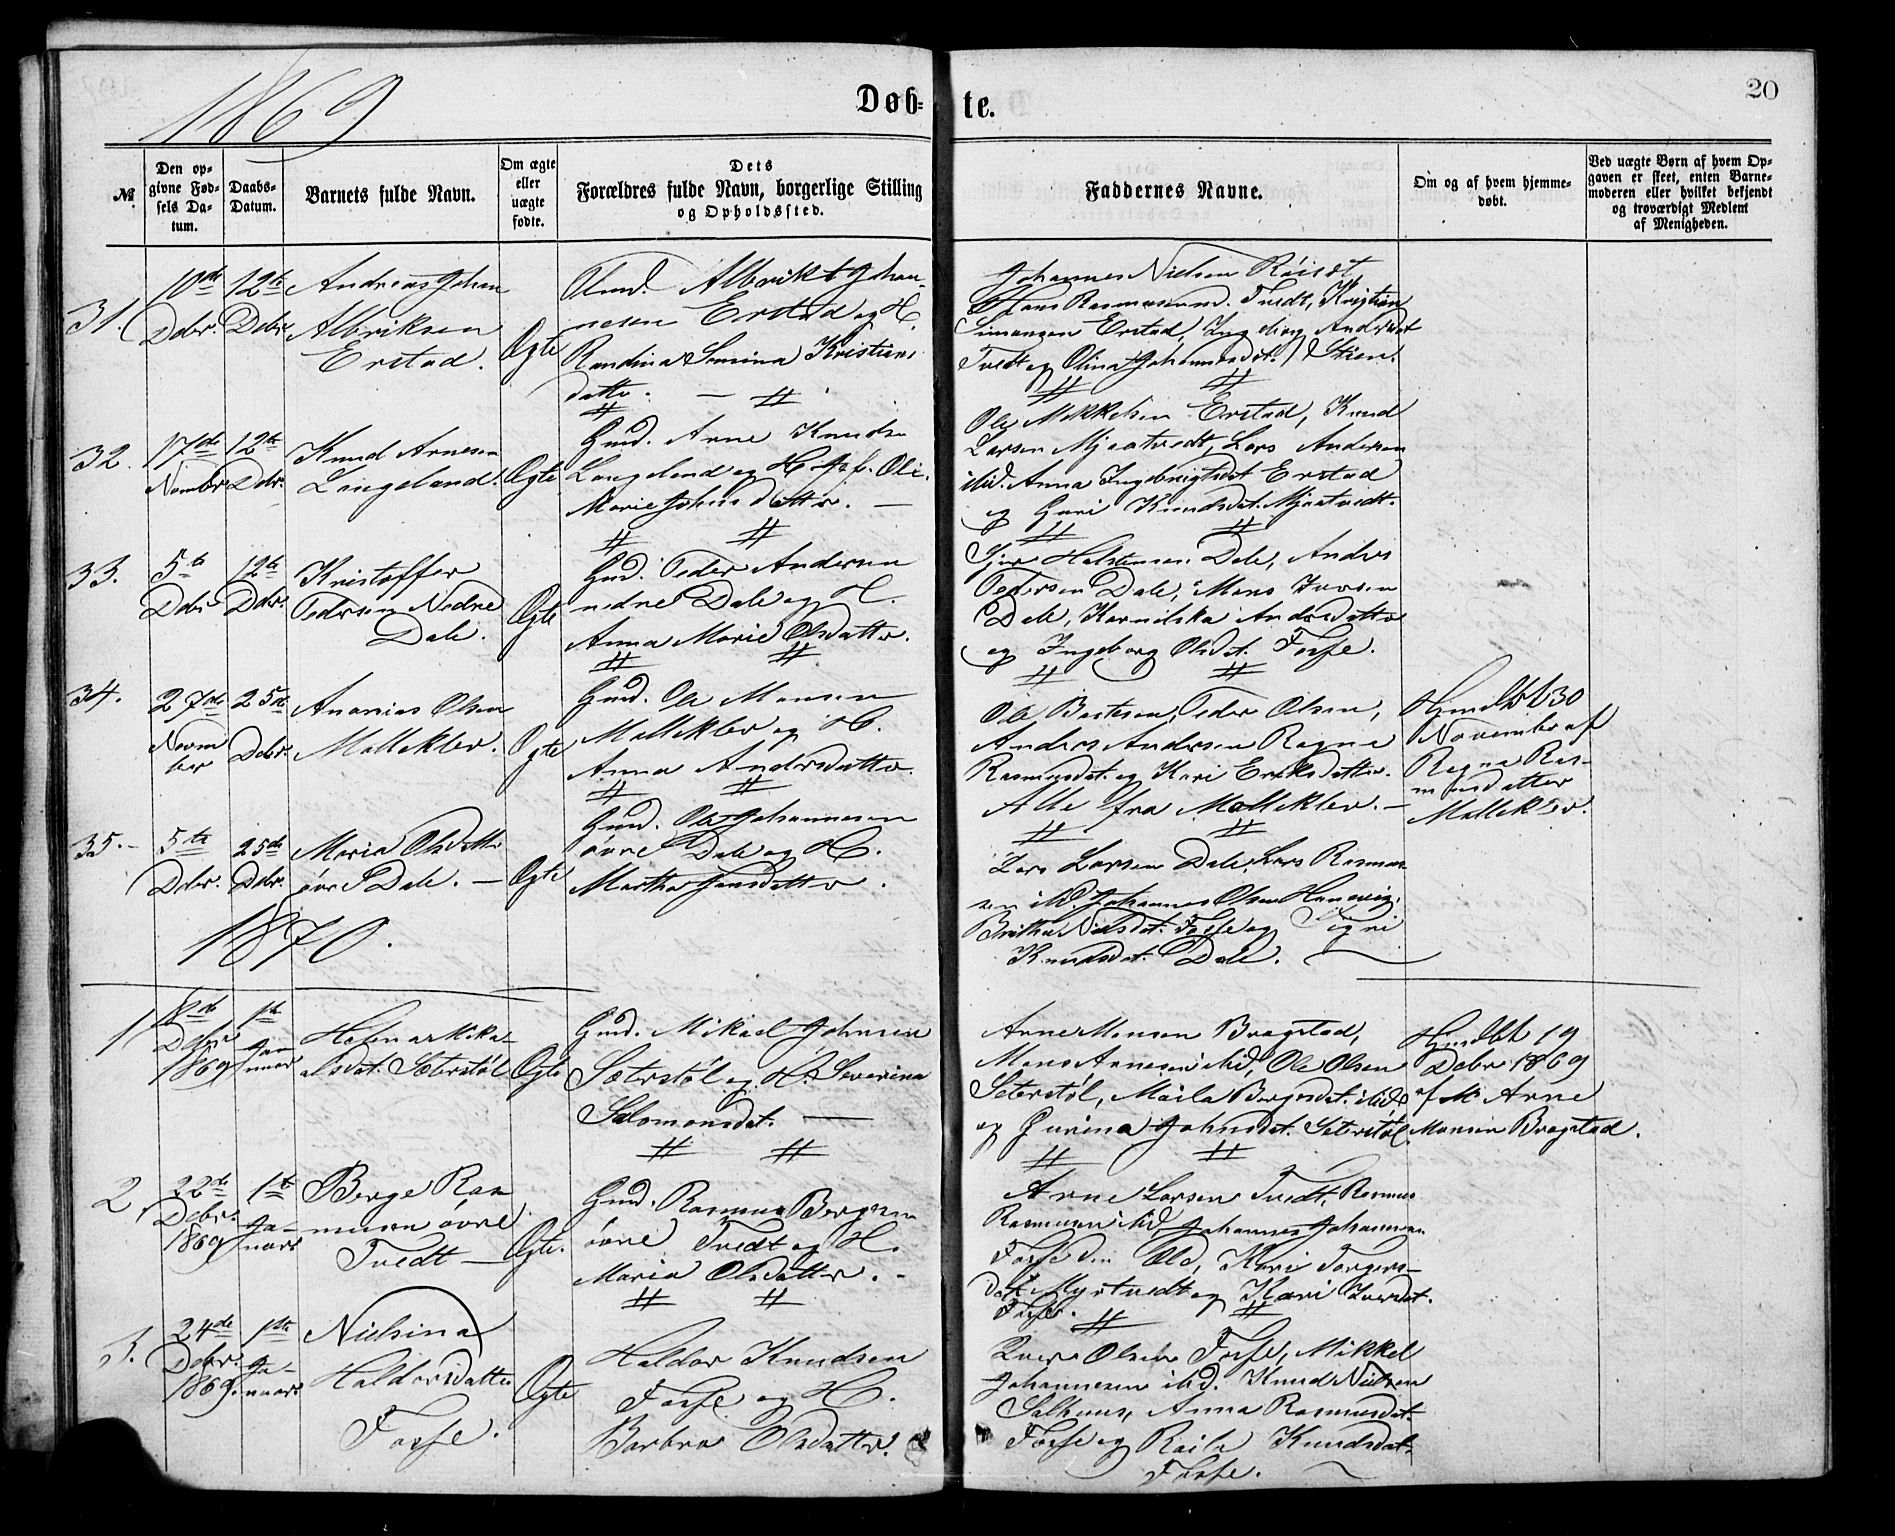 1869
Døb-
te.
20
№
Den op-
givne Fød-
sels Da-
tum.
Daabs-
Datum.
Barnets fulde Navn.
Om ægte
eller
uægte
fødte.
Dets
Forældres fulde Navn, borgerlige Stilling
og Opholdssted.
Faddernes Navne.
Om og af hvem hjemme-
døbt.
Ved uægte Børn af hvem Op-
gaven er skeet, enten Barne-
moderen eller hvilket bekjendt
og troværdigt Medlem
af Menigheden.
31.
10de
Debr.
12te
Debr.
Andreas Johan
Albriksen
Erstad.
Ægte
Albrikt Johan-
nesen Erstad og H.
Randina Kristians
datter.
Johannes Nielsen
Hans Rasmussen Tvedt, Kristian
Simonsen Erstad, Andersdt
Tvedt og Olina Johannesdt.
32.
17de
Novmbr
12te
Debr.
Knud Arnesen
Langeland.
Ægte
Gmd. Arne Knudsen
Langeland og H.
Marie Johnsdatter.
Ole Mikkelsen Erstad, Knud
Larsen Mjaatvedt, Lars Andersen
ibid. Anna Ingebrigtsdt Erstad
og Guri Knudsdt. Mjaatvedt.
33.
5te
Debr
12te
Debr.
Kristoffer
Pedersen Nedre
Dale.
Ægte
Gmd. Peder Andersen
nedre Dale og H.
Anna Marie Olsdatter.
Halstensen Dale, Anders
Pedersen Dale, Mons Iversen
Dale, Kornelska Andersdatter
og Ingeborg Olsdt. Fosse.
34.
27de
Novm
ber
25de
Debr.
Ananias Olsen
Molleklev.
Ægte
Gmd. Ole Monsen
Molleklev og H.
Anna Andersdatter.
Ole Bertesen, Peder Olsen,
Anders Andersen Ragna
Rasmusdt. og Kari Eriksdatter.
Alle fra Molleklev.
Hjmdbt 30
November af
Ragna Ras-
musdatter
Molleklev.
35.
5te
Debr.
25de
Debr.
Maria Olsdatter
øvre Dale.
Ægte
Gmd. Ole Johannesen
øvre Dale og H.
Martha Jensdatter.
Lars Larsen Dale, Lars Rasmus-
sen ibid. Johannes Olsen Hanevig,
Britha Nielsdt. Fosse og Sigri
Knudsdt. Dale.
1870.
1
Debr
1869
1ste
Jan-
nuar
Mika-
elsdt. Sæterstøl
Ægte
Gmd. Mikael Johnsen
Sæterstøl og H. Severina
Salomonsdt.
Arne Monsen Brogstad,
Mons Arnesen ibid, Ole Olsen
Seterstøl, Maila Bergesdt. ibid
og Gurina Johnsdt. Seterstøl.
Hjmdbt 19
Debr 1869
af Arne
Monsen Brogstad.
2
22de
Debr.
1869
1ste
Ja-
nuar
Berge Ras-
musen øvre
Tvedt
Ægte.
Gmd. Rasmus Bergesen
øvre Tvedt og H.
Maria Olsdatter.
Arne Larsen Tvedt, Rasmus
Rasmusen ibid, Johannes Johannesen
Fosse den Old, Kari Torgers-
dt. Mystvedt og Kari Iversdt.
Fosse.
3.
24de
Debr.
1869.
1ste
Ja-
nuar
Nielsina
Haldorsdatter
Fosse.
Ægte
Haldor Knudsen
Fosse og H.
Barbra Olsdatter.
Iver Olsen Fosse, Mikkel
Johannesen ibid. Knud Nielsen
Salhuus, Anna Rasmusdt.
Fosse og Raila Knudsdt.
Fosse.